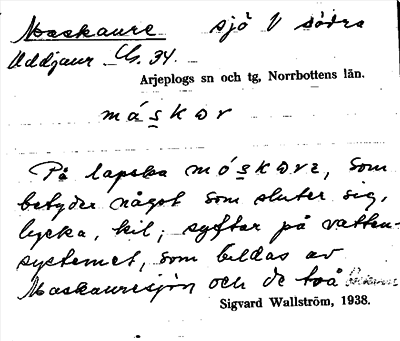 Maskaure sjö V södra
Uddjaur
34.
Arjeplogs sn och tg, Norrbottens län.
måskɷv
På lapska móskɷvɛ, som
betyder något som sluter sig,
lycka, kil; syftar på vatten-
systemet, som bildas av
Maskauresjön och de två
Sigvard Wallström, 1938.